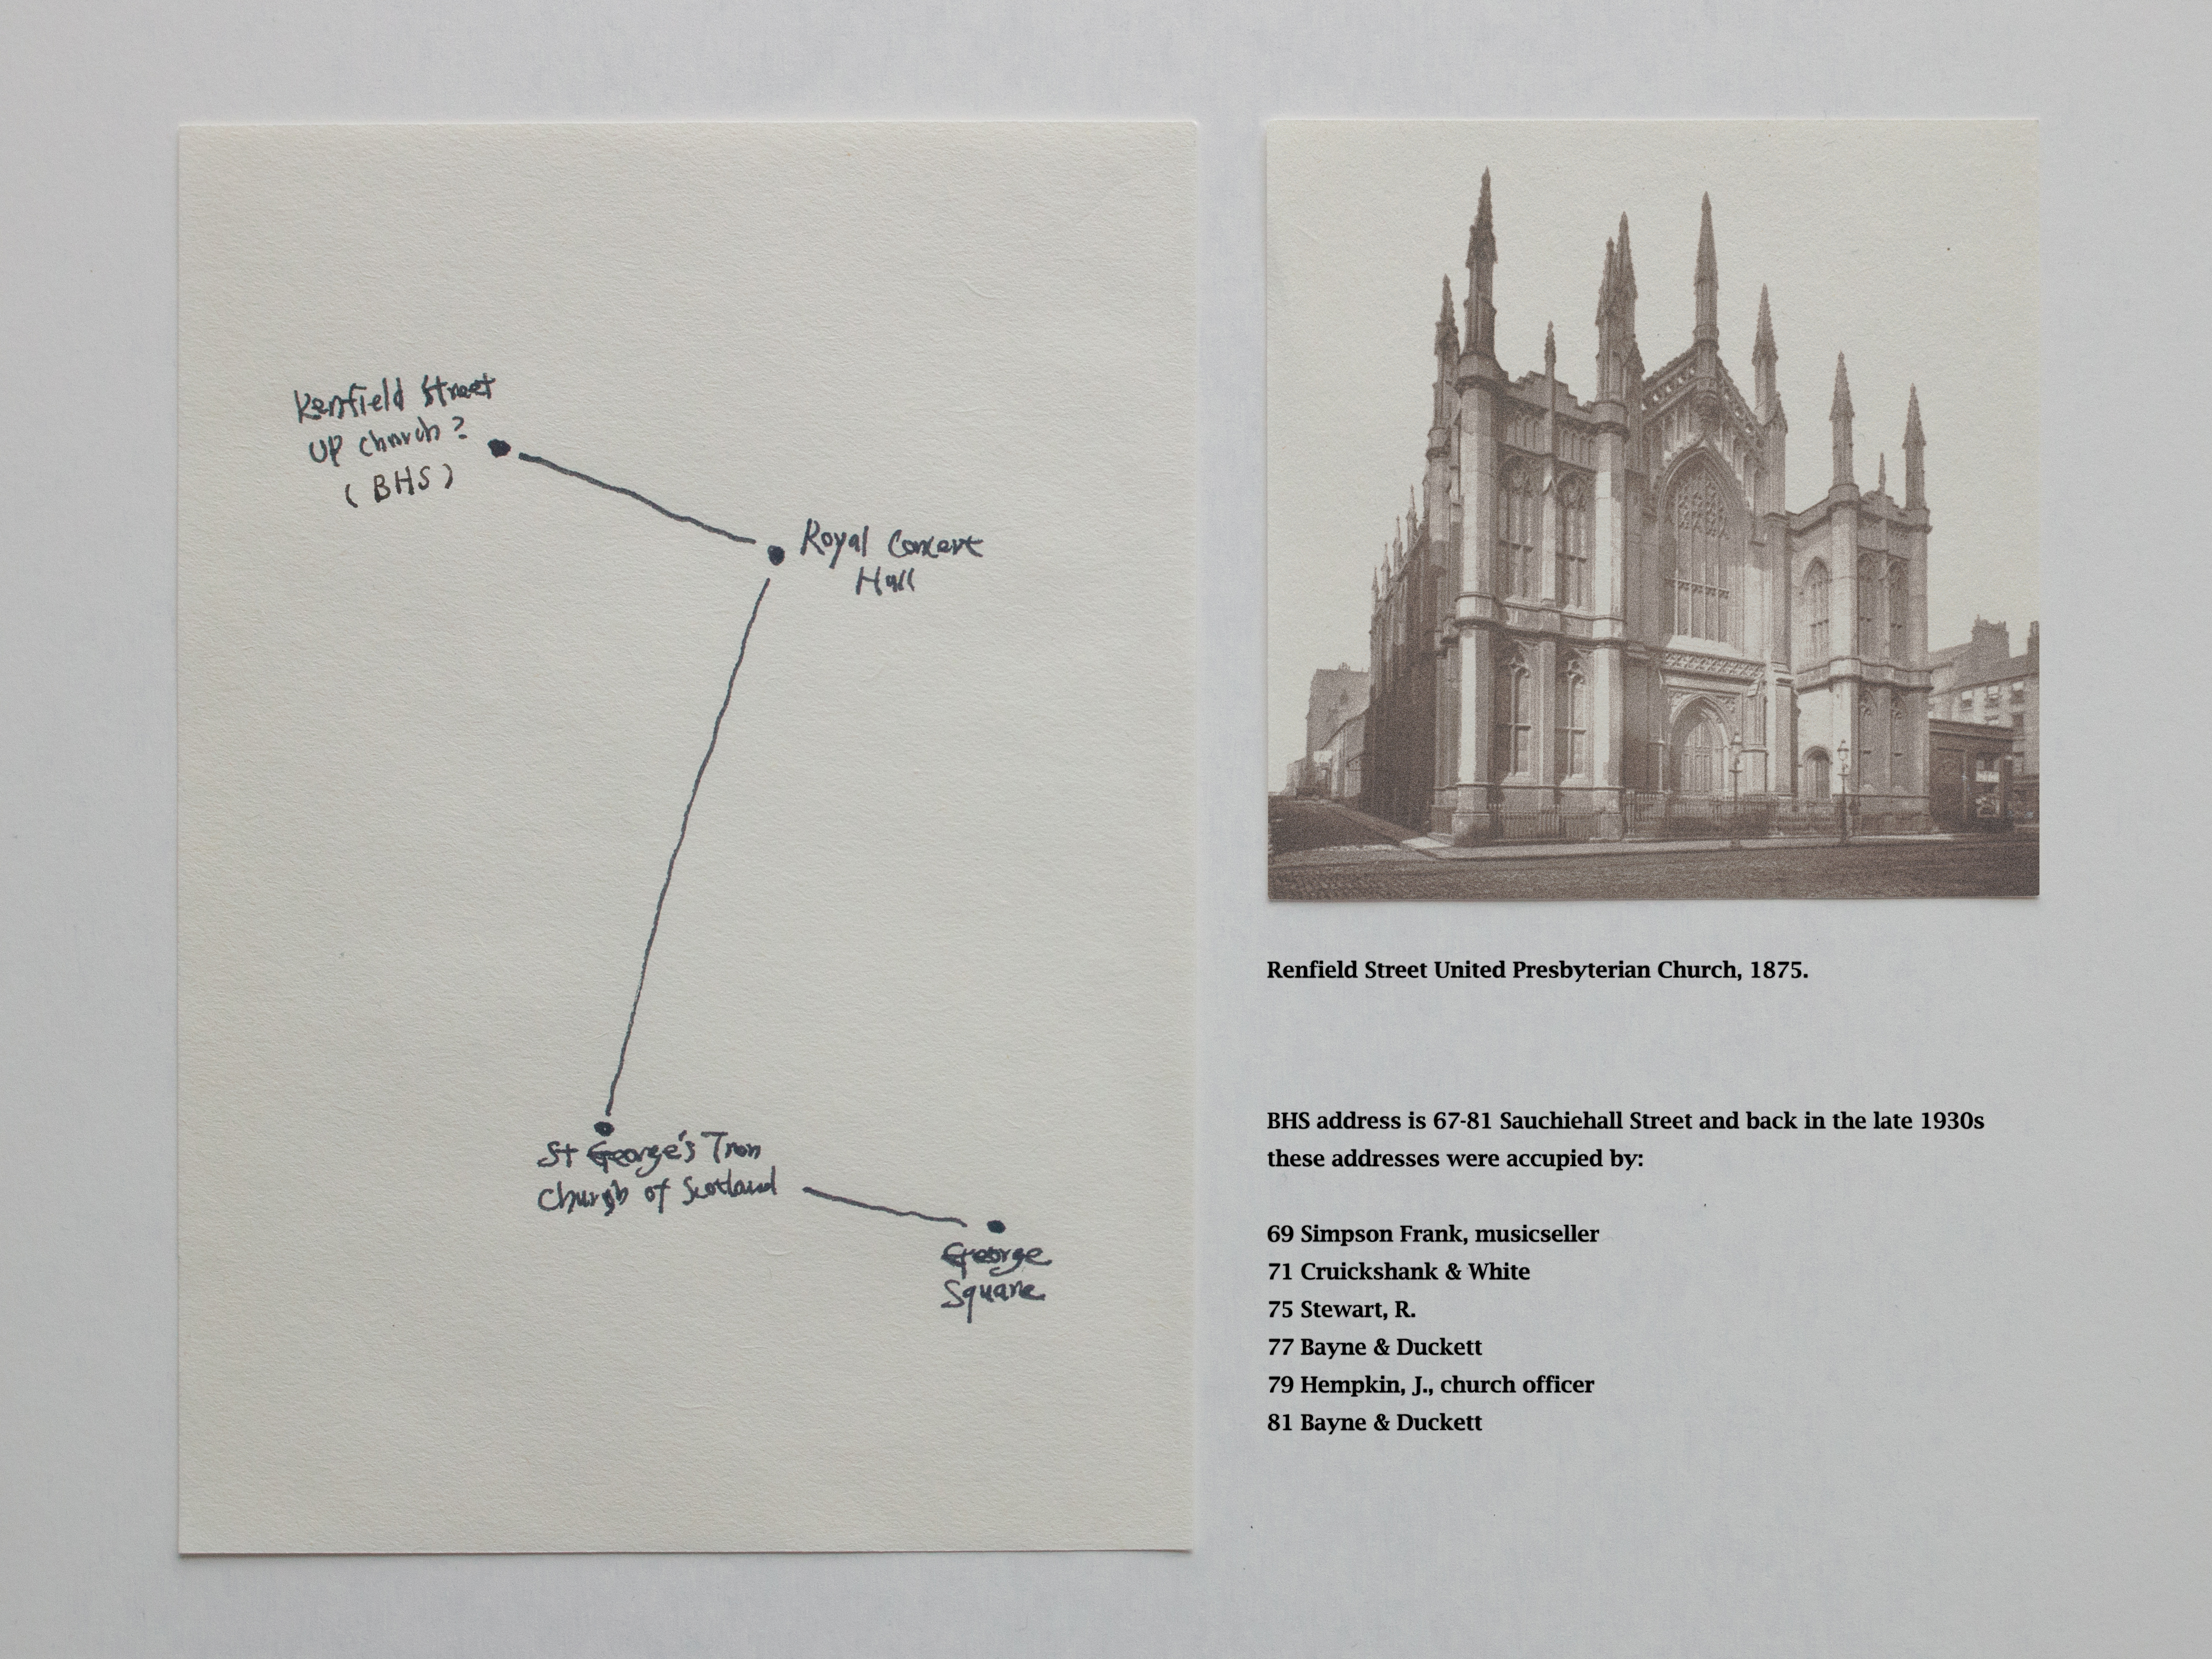 Renfield Street
UP Church?
(BHS)
Royal Concert
Hall
St George's Tron
Church of Scotland
George
Square
Renfield Street United Presbyterian Church, 1875.
BHS address is 67-81 Sauchiehall Street and back in the late 1930s
these addresses were accupied by:
69 Simpson Frank, musicseller
71 Cruickshank & White
75 Stewart, R.
77 Bayne & Duckett
79 Hempkin, J., church officer
81 Bayne & Duckett